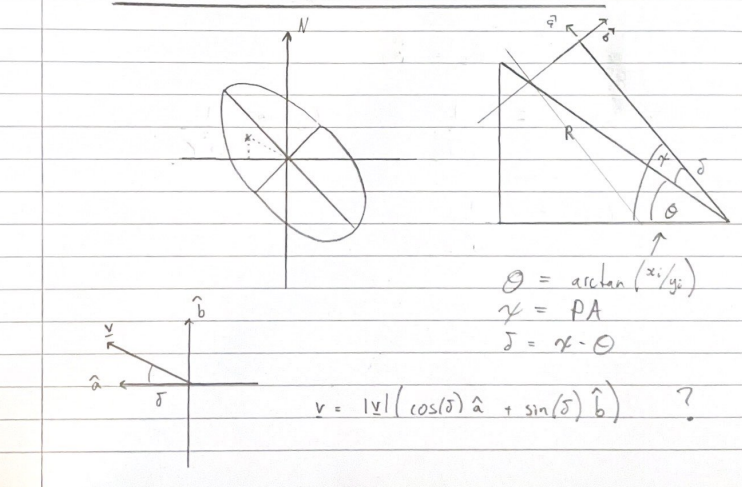 N
a⃗
b⃗
R
χ
δ
θ
θ = arctan(xᵢ/yᵢ)
χ = PA
δ = χ - θ
b̂
v
â
δ
v = |v|(cos(δ) â + sin(δ) b̂) ?